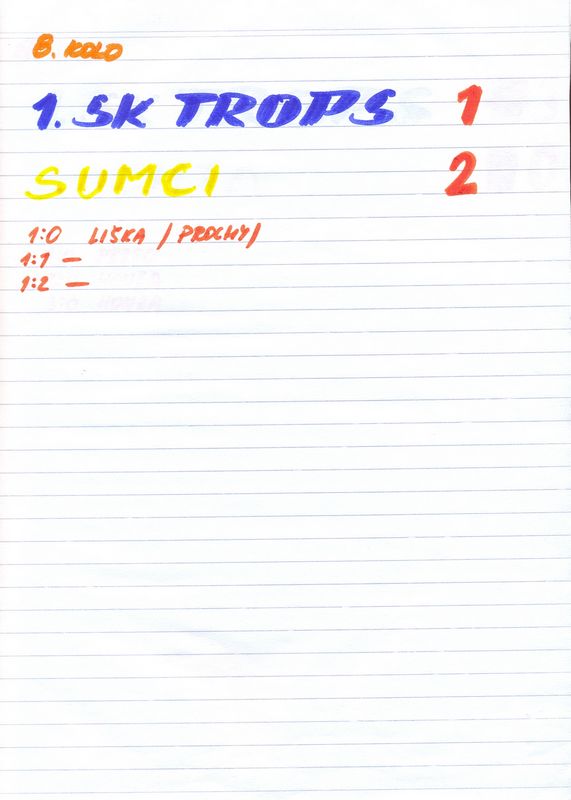 8. KOLO
1. SK TROPS 1
SUMCI 2
1:0 LIŠKA / PROCHY /
1:1 —
1:2 —